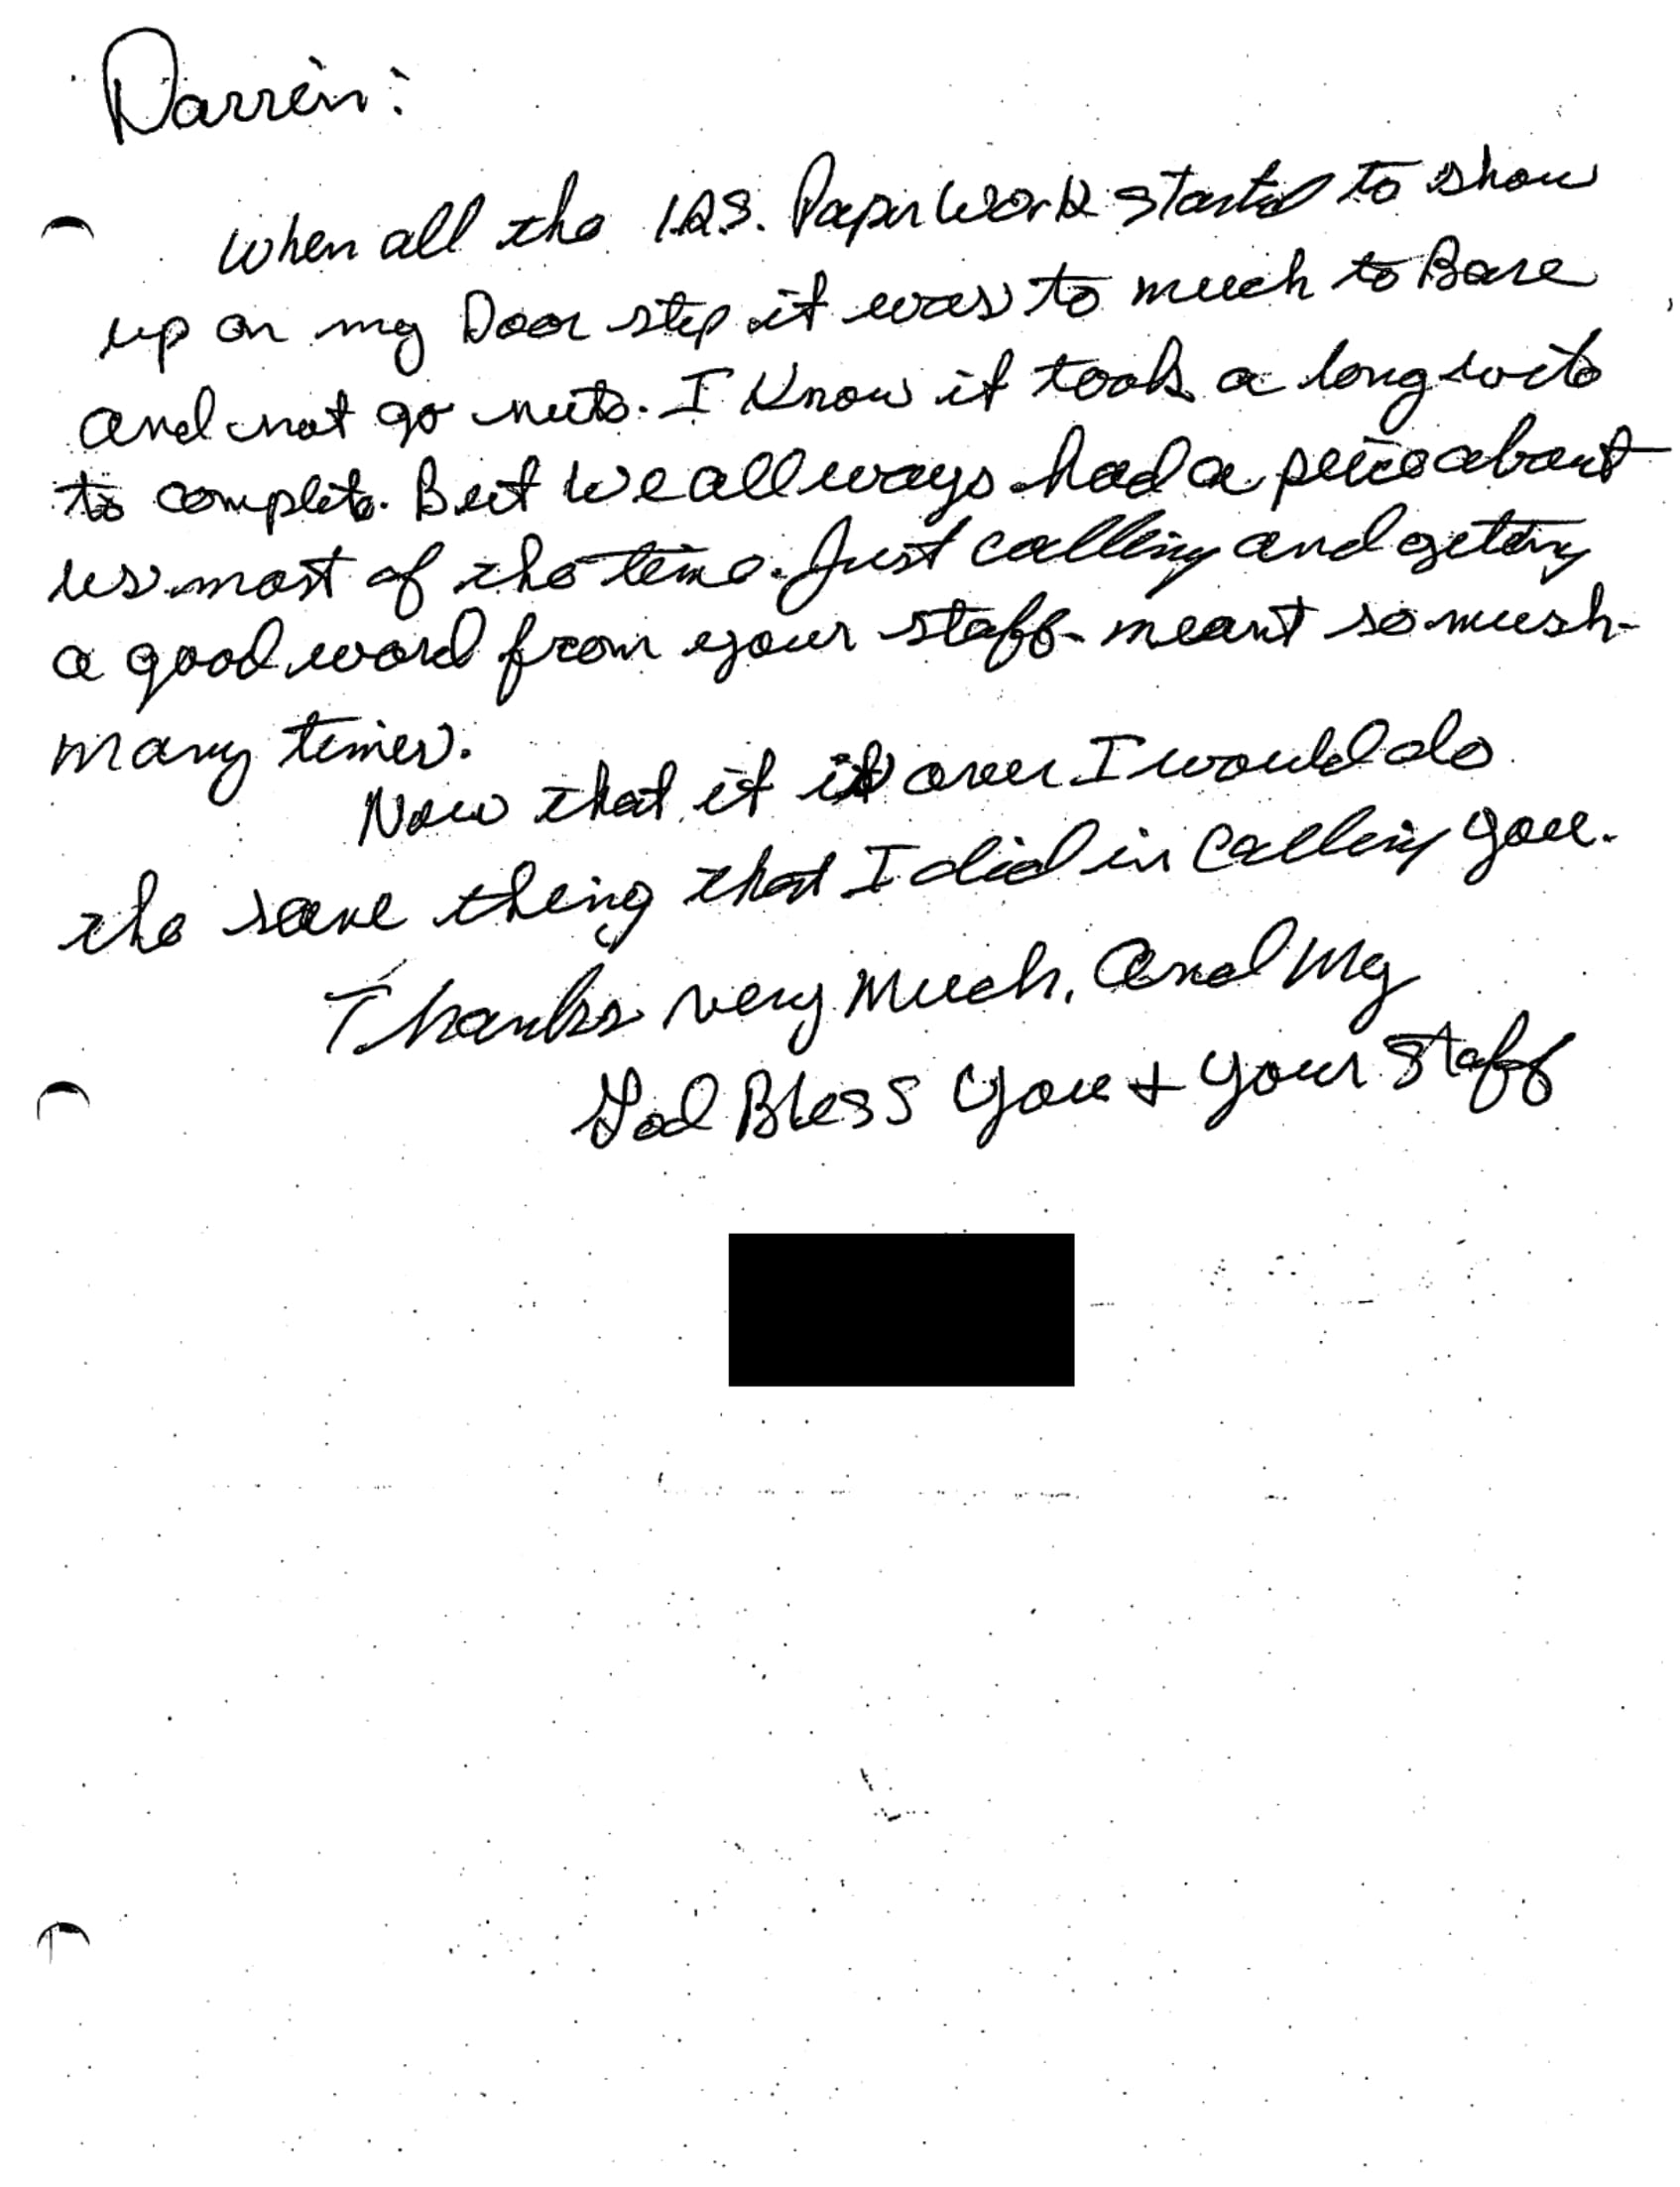 Darrin:
When all the I.R.S. Paper Work started to show
up on my Door step it was to much to Bare
and not go nuts. I Know it took a long
to complete. But We allways had a peice about
us most of the time. Just calling and geting
a good word from your staff meant so mush
many times.
Now that it is over I would do
the same thing that I did in Calling you.
Thanks very Much, And My
God Bless You + Your Staff